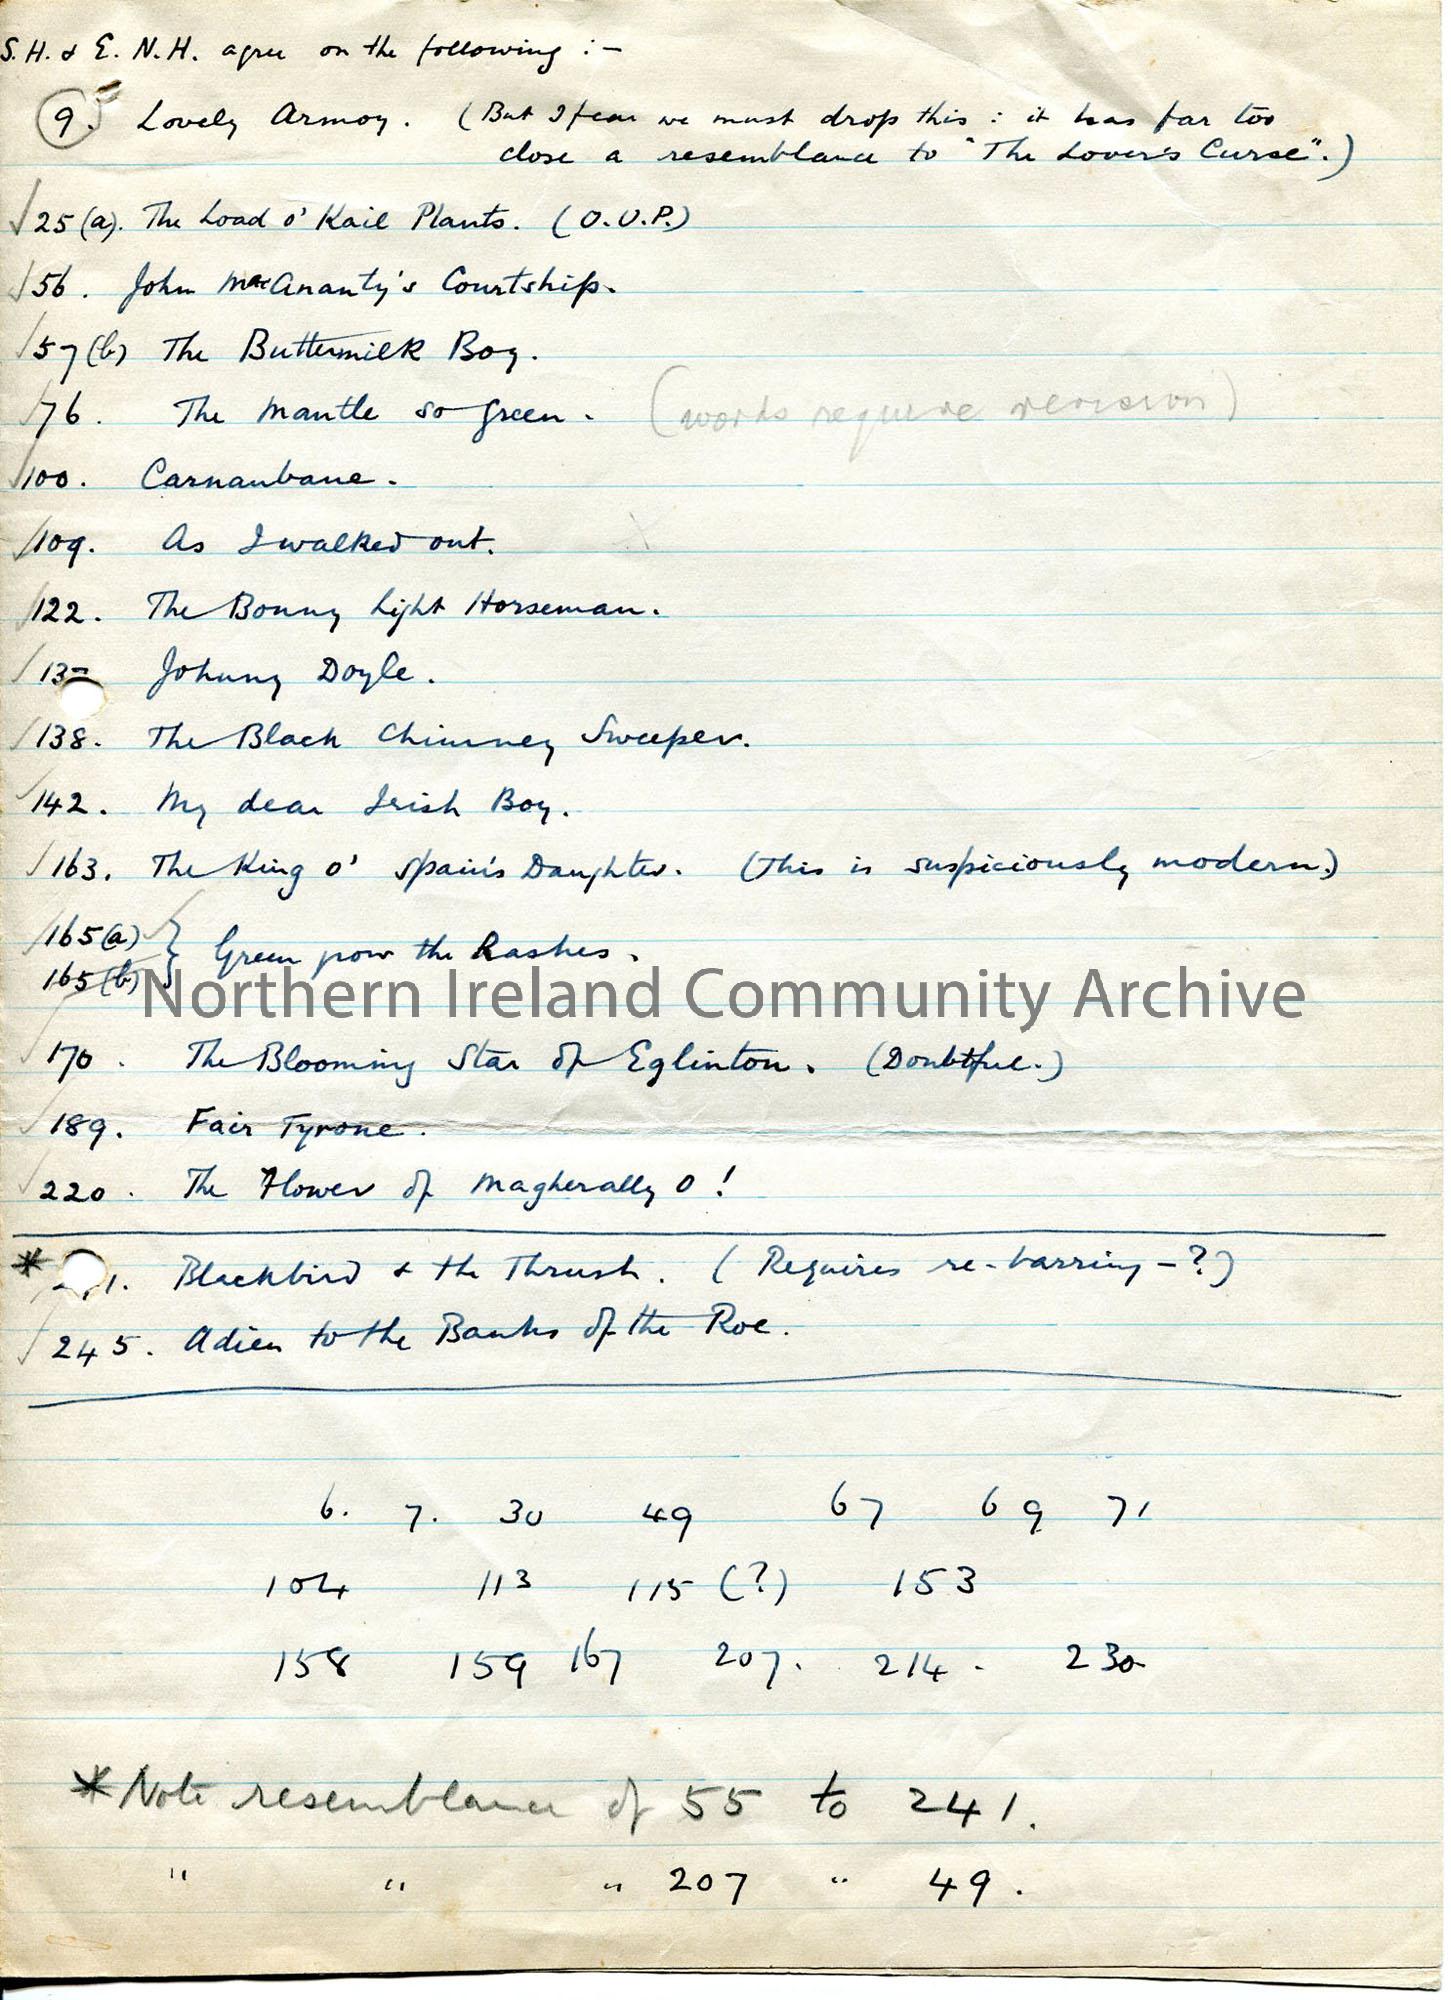 S.H. & E.N.H. agree on the following :-
9. Lovely Armoy. (But I fear we must drop this: it has far too
close a resemblance to "The Lover's Curse".)
25(a). The Load o' Kail Plants. (O.U.P.)
56. John MacAnanty's Courtship.
57(b) The Buttermilk Boy.
76. The Mantle so Green. (words require revision)
100. Carnanbane.
109. As I walked out.
122. The Bonny Light Horseman.
13 Johnny Doyle.
138. The Black Chimney Sweeper.
142. My dear Irish Boy.
163. The King o' Spain's Daughter. (This is suspiciously modern.)
165(a)
165(b) } Green grow the Rashes.
Northern Ireland Community Archive
170. The Blooming Star of Eglinton. (Doubtful.)
189. Fair Tyrone.
220. The Flower of Magherally O!
* 1. Blackbird & the Thrush. (Requires re-barring -?)
245. Adieu to the Banks of the Roe.
6. 7. 30 49 67 69 71
104 113 115 (?) 153
158 159 167 207. 214. 230
* Note resemblance of 55 to 241.
" " " 207 " 49.